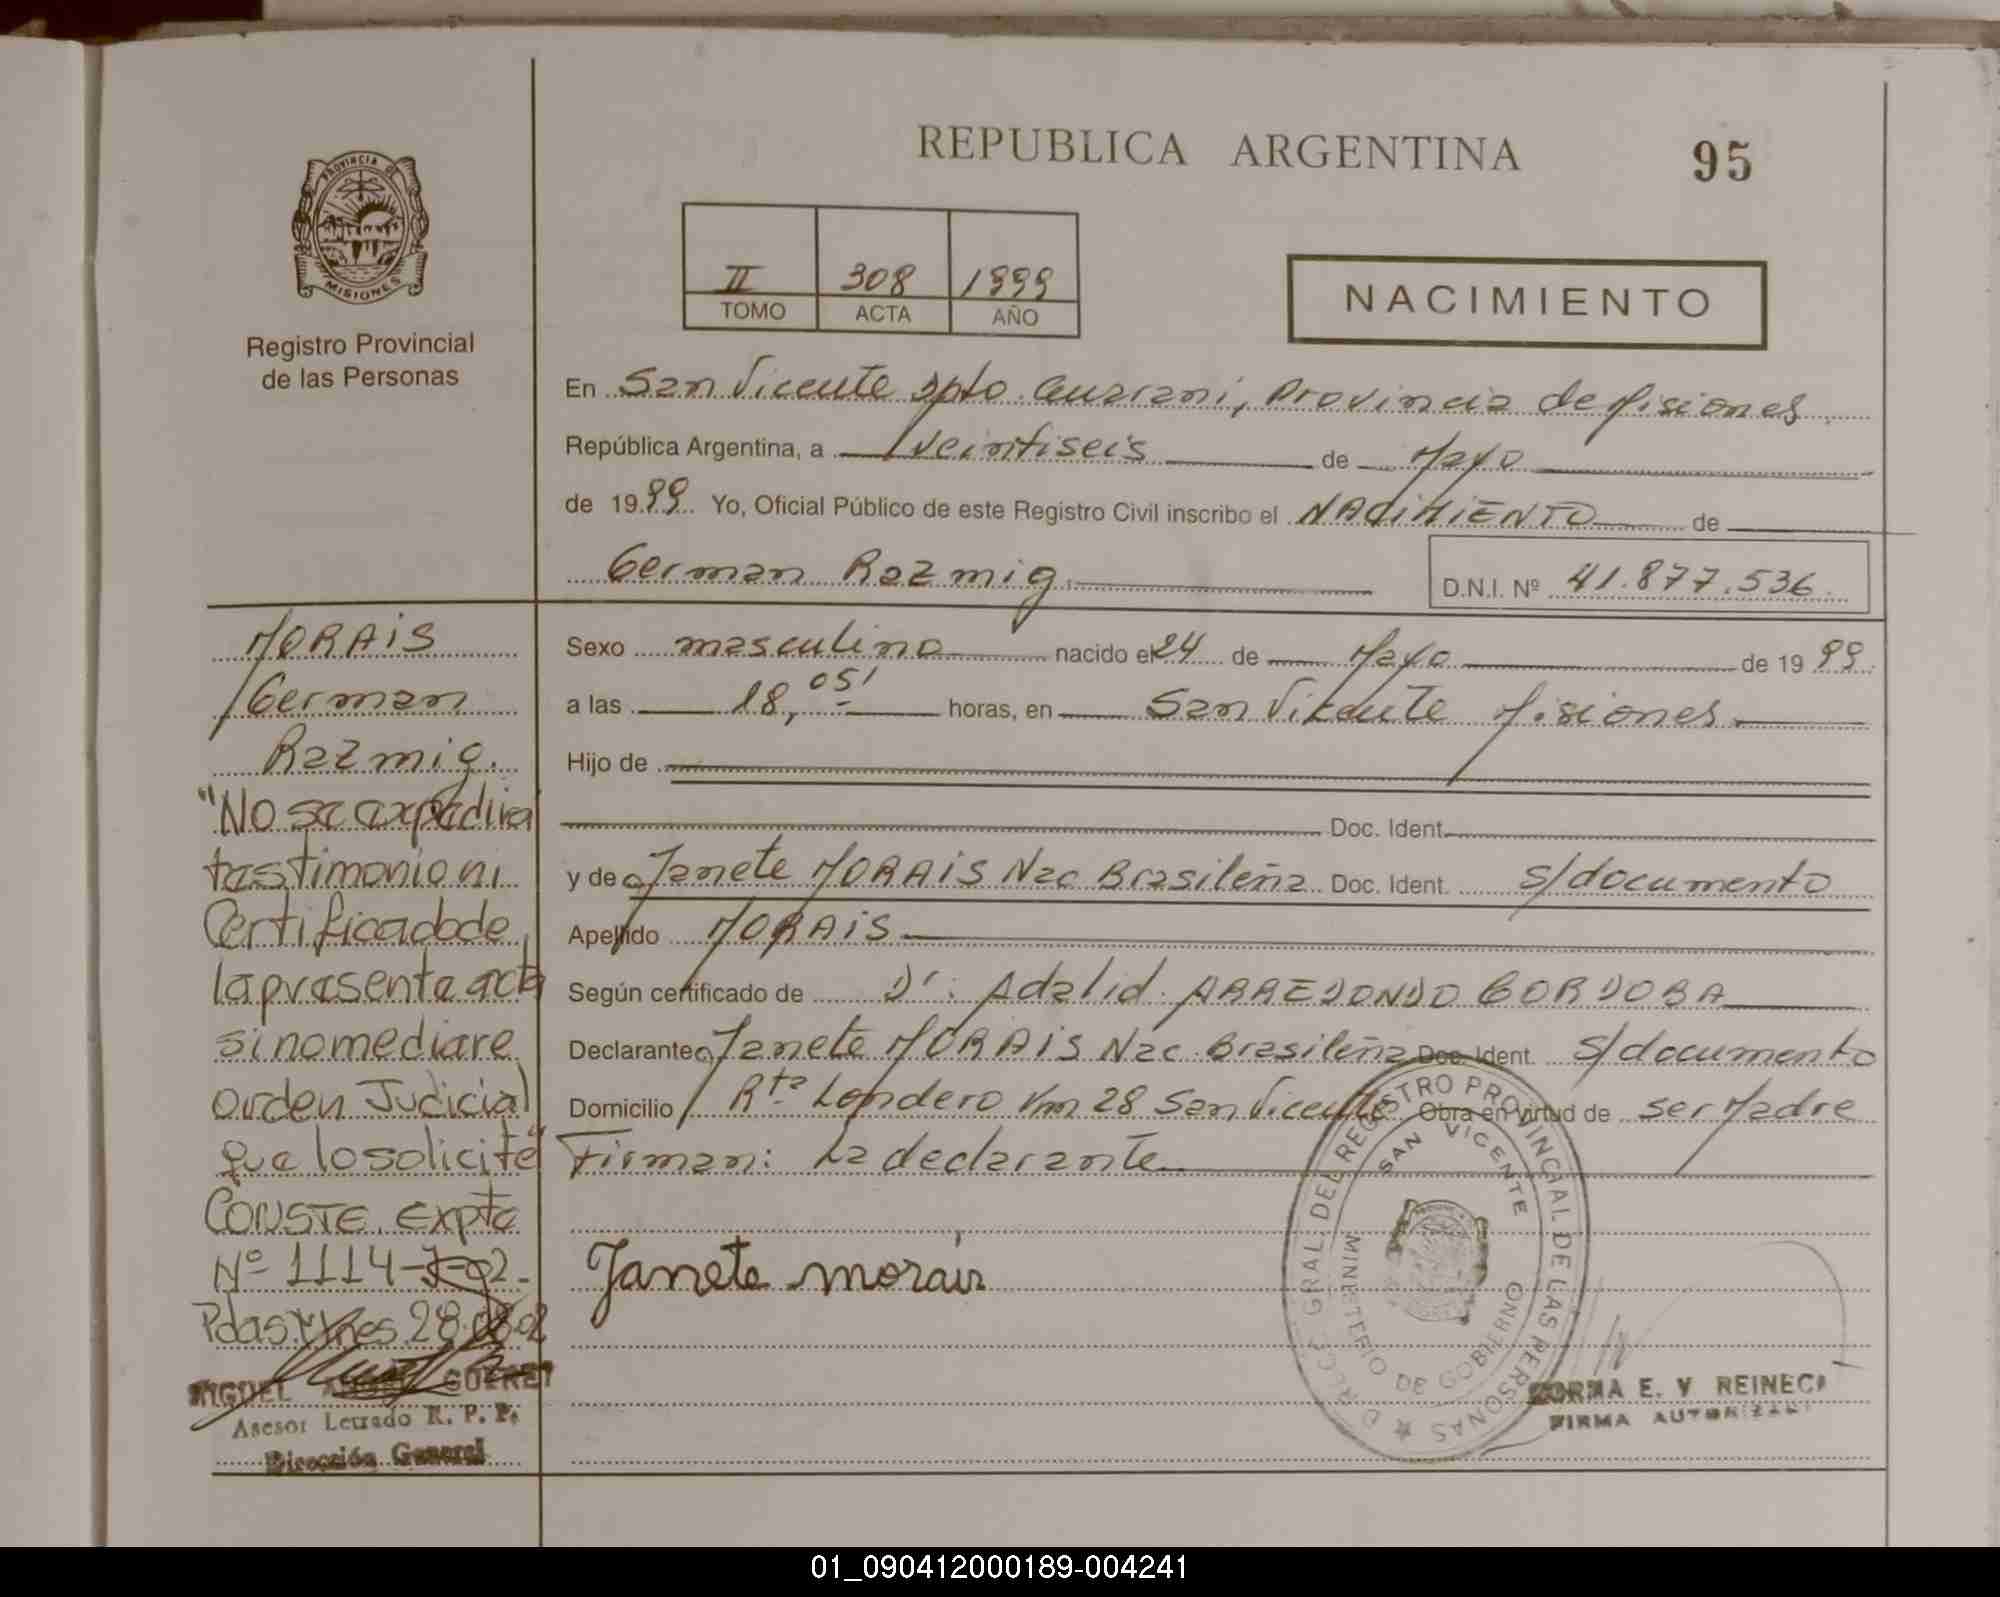 REPUBLICA ARGENTINA
95
PROVINCIA DE
MISIONES
Registro Provincial
de las Personas
II 308 1999
TOMO ACTA AÑO
NACIMIENTO
En San Vicente Dpto. Guarani, Provincia de Misiones
República Argentina, a Veintiseis de Mayo
de 1999 Yo, Oficial Público de este Registro Civil inscribo el NACIMIENTO de
German Razmig.
D.N.I. Nº 41.877.536
Sexo masculino nacido el 24 de Mayo de 1999
a las 18,05' horas, en San Vicente Misiones
Hijo de
Doc. Ident.
y de Janete MORAIS Nac Brasileña Doc. Ident. s/documento
Apellido MORAIS
Según certificado de Dr. Adalid ARREDONDO CORDOBA
Declarante Janete MORAIS Nac. Brasileña Doc. Ident. s/documento
Domicilio Rta Londero Km 28 San Vicente Obra en virtud de ser Madre
Firman: La declarante
Janete morais
MORAIS
German
Razmig.
"No se expedira
testimonio ni
Certificado de
la presente acta
si no mediare
orden Judicial
que lo solicite"
CONSTE. Expte
Nº 1114-
Pdas. Mnes 28.08.02
MIGUEL ANGEL GUERET
Asesor Letrado R. P. P.
Dirección General
DIREC. GRAL. DEL REGISTRO PROVINCIAL DE LAS PERSONAS
SAN VICENTE
MINISTERIO DE GOBIERNO
NORMA E. V REINECK
FIRMA AUTORIZADA
01_090412000189-004241